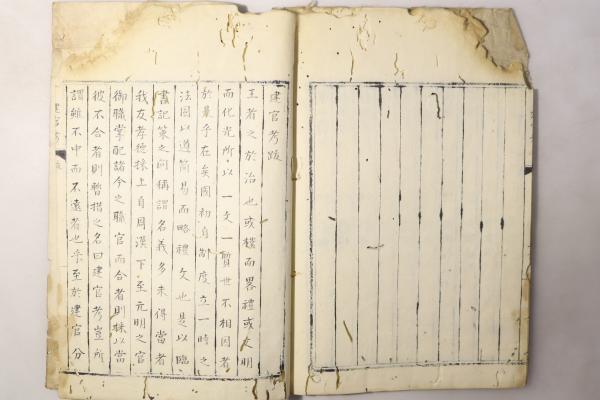 建官考跋
王者之於治也或樸而畧禮或文明
而化光所以一文一質世不相因者
於是乎在矣國初自制度立一時之
法固以道簡易而略禮文也是以臨
書記策之間稱謂名義多未得當者
我友孝德採上自周漢下至元明之官
御職掌配諸今之職官而合者則採以當
彼不合者則暫措之名曰建官考豈所
謂雖不中而不遠者也乎至於建官分
建官考